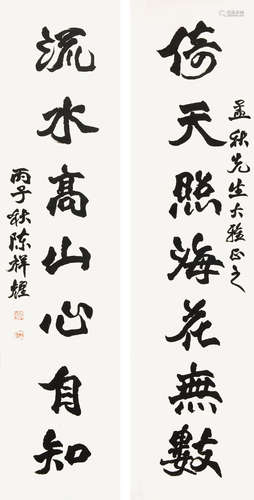 倚天照海花無數
孟秋先生大雅正之
流水高山心自知
丙子秋陈祥耀